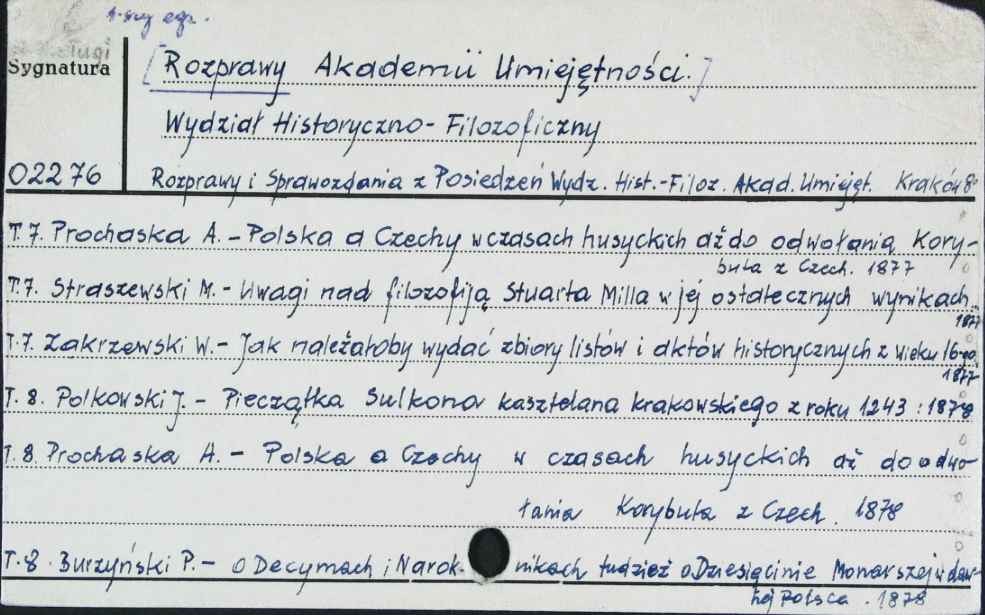 1-szy egz.
Sygnatura
[Rozprawy Akademii Umiejętności.]
Wydział Historyczno-Filozoficzny
02276
Rozprawy i Sprawozdania z Posiedzeń Wydz. Hist.-Filoz. Akad. Umiejęt. Kraków 8°
T.7. Prochaska A. - Polska a Czechy w czasach husyckich aż do odwołania Kory-
buta z Czech. 1877
T.7. Straszewski M. - Uwagi nad filozofiją Stuarta Milla w jej ostatecznych wynikach.
1877
T.7. Zakrzewski W. - Jak należałoby wydać zbiory listów i aktów historycznych z wieku 16-go
1877
T.8. Polkowski J. - Pieczątka Sulkona kasztelana krakowskiego z roku 1243 : 1878
T.8. Prochaska A. - Polska a Czechy w czasach husyckich aż do odwo-
łania Korybuta z Czech. 1878
T.8. Burzyński P. - o Decymach i Narok- nikach tudzież o Dziesięcinie Monarszej w daw-
nej Polsce. 1878